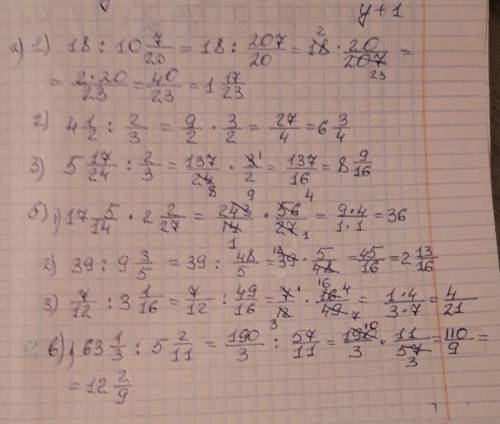 y + 1
а) 1) 18 : 10 7/20 = 18 : 207/20 = 18 2 · 20/207 23 =
= 2·20/23 = 40/23 = 1 17/23
2) 4 1/2 : 2/3 = 9/2 · 3/2 = 27/4 = 6 3/4
3) 5 17/24 : 2/3 = 137/24 8 · 3 1/2 = 137/16 = 8 9/16
б) 1) 17 5/14 · 2 2/27 = 243 9/14 1 · 56 4/27 1 = 9·4/1·1 = 36
2) 39 : 9 3/5 = 39 : 48/5 = 39 · 5/48 16 = 45/16 = 2 13/16
3) 7/12 : 3 1/16 = 7/12 : 49/16 = 7 1/12 3 · 16 4/49 7 = 1·4/3·7 = 4/21
в) 1) 63 1/3 : 5 2/11 = 190/3 : 57/11 = 190 10/3 · 11/57 3 = 110/9 =
= 12 2/9